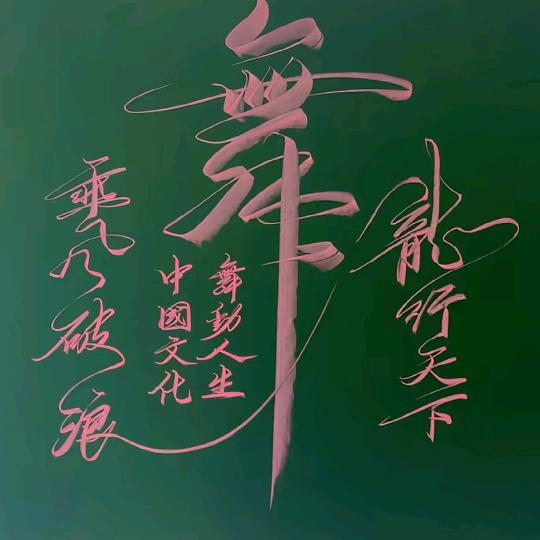 舞
龍行天下
舞動人生
中國文化
乘风破浪